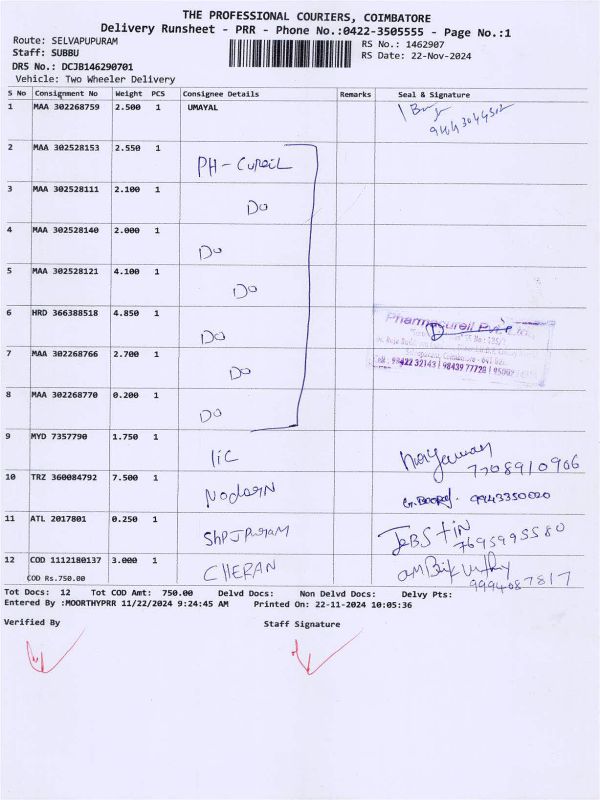 THE PROFESSIONAL COURIERS, COIMBATORE
Delivery Runsheet - PRR - Phone No.:0422-3505555 - Page No.:1
Route: SELVAPUPURAM
RS No.: 1462907
Staff: SUBBU
RS Date: 22-Nov-2024
DRS No.: DCJB146290701
Vehicle: Two Wheeler Delivery
S No Consignment No Weight PCS Consignee Details Remarks Seal & Signature
1 MAA 302268759 2.500 1 UMAYAL
2 MAA 302528153 2.550 1 PH-CUREIL
3 MAA 302528111 2.100 1 Do
4 MAA 302528140 2.000 1 Do
5 MAA 302528121 4.100 1 Do
6 HRD 366388518 4.850 1 Do
Pharmacureil Pvt
7 MAA 302268766 2.700 1 Do
Cell : 98422 32143 | 98439 77728 |
8 MAA 302268770 0.200 1 Do
9 MYD 7357790 1.750 1 lic
7708910906
10 TRZ 360084792 7.500 1 9943350020
11 ATL 2017801 0.250 1 JEBSTIN
7695995580
12 COD 1112180137 3.000 1 CHERAN
9994087817
COD Rs.750.00
Tot Docs: 12 Tot COD Amt: 750.00 Delvd Docs: Non Delvd Docs: Delvy Pts:
Entered By :MOORTHYPRR 11/22/2024 9:24:45 AM Printed On: 22-11-2024 10:05:36
Verified By Staff Signature